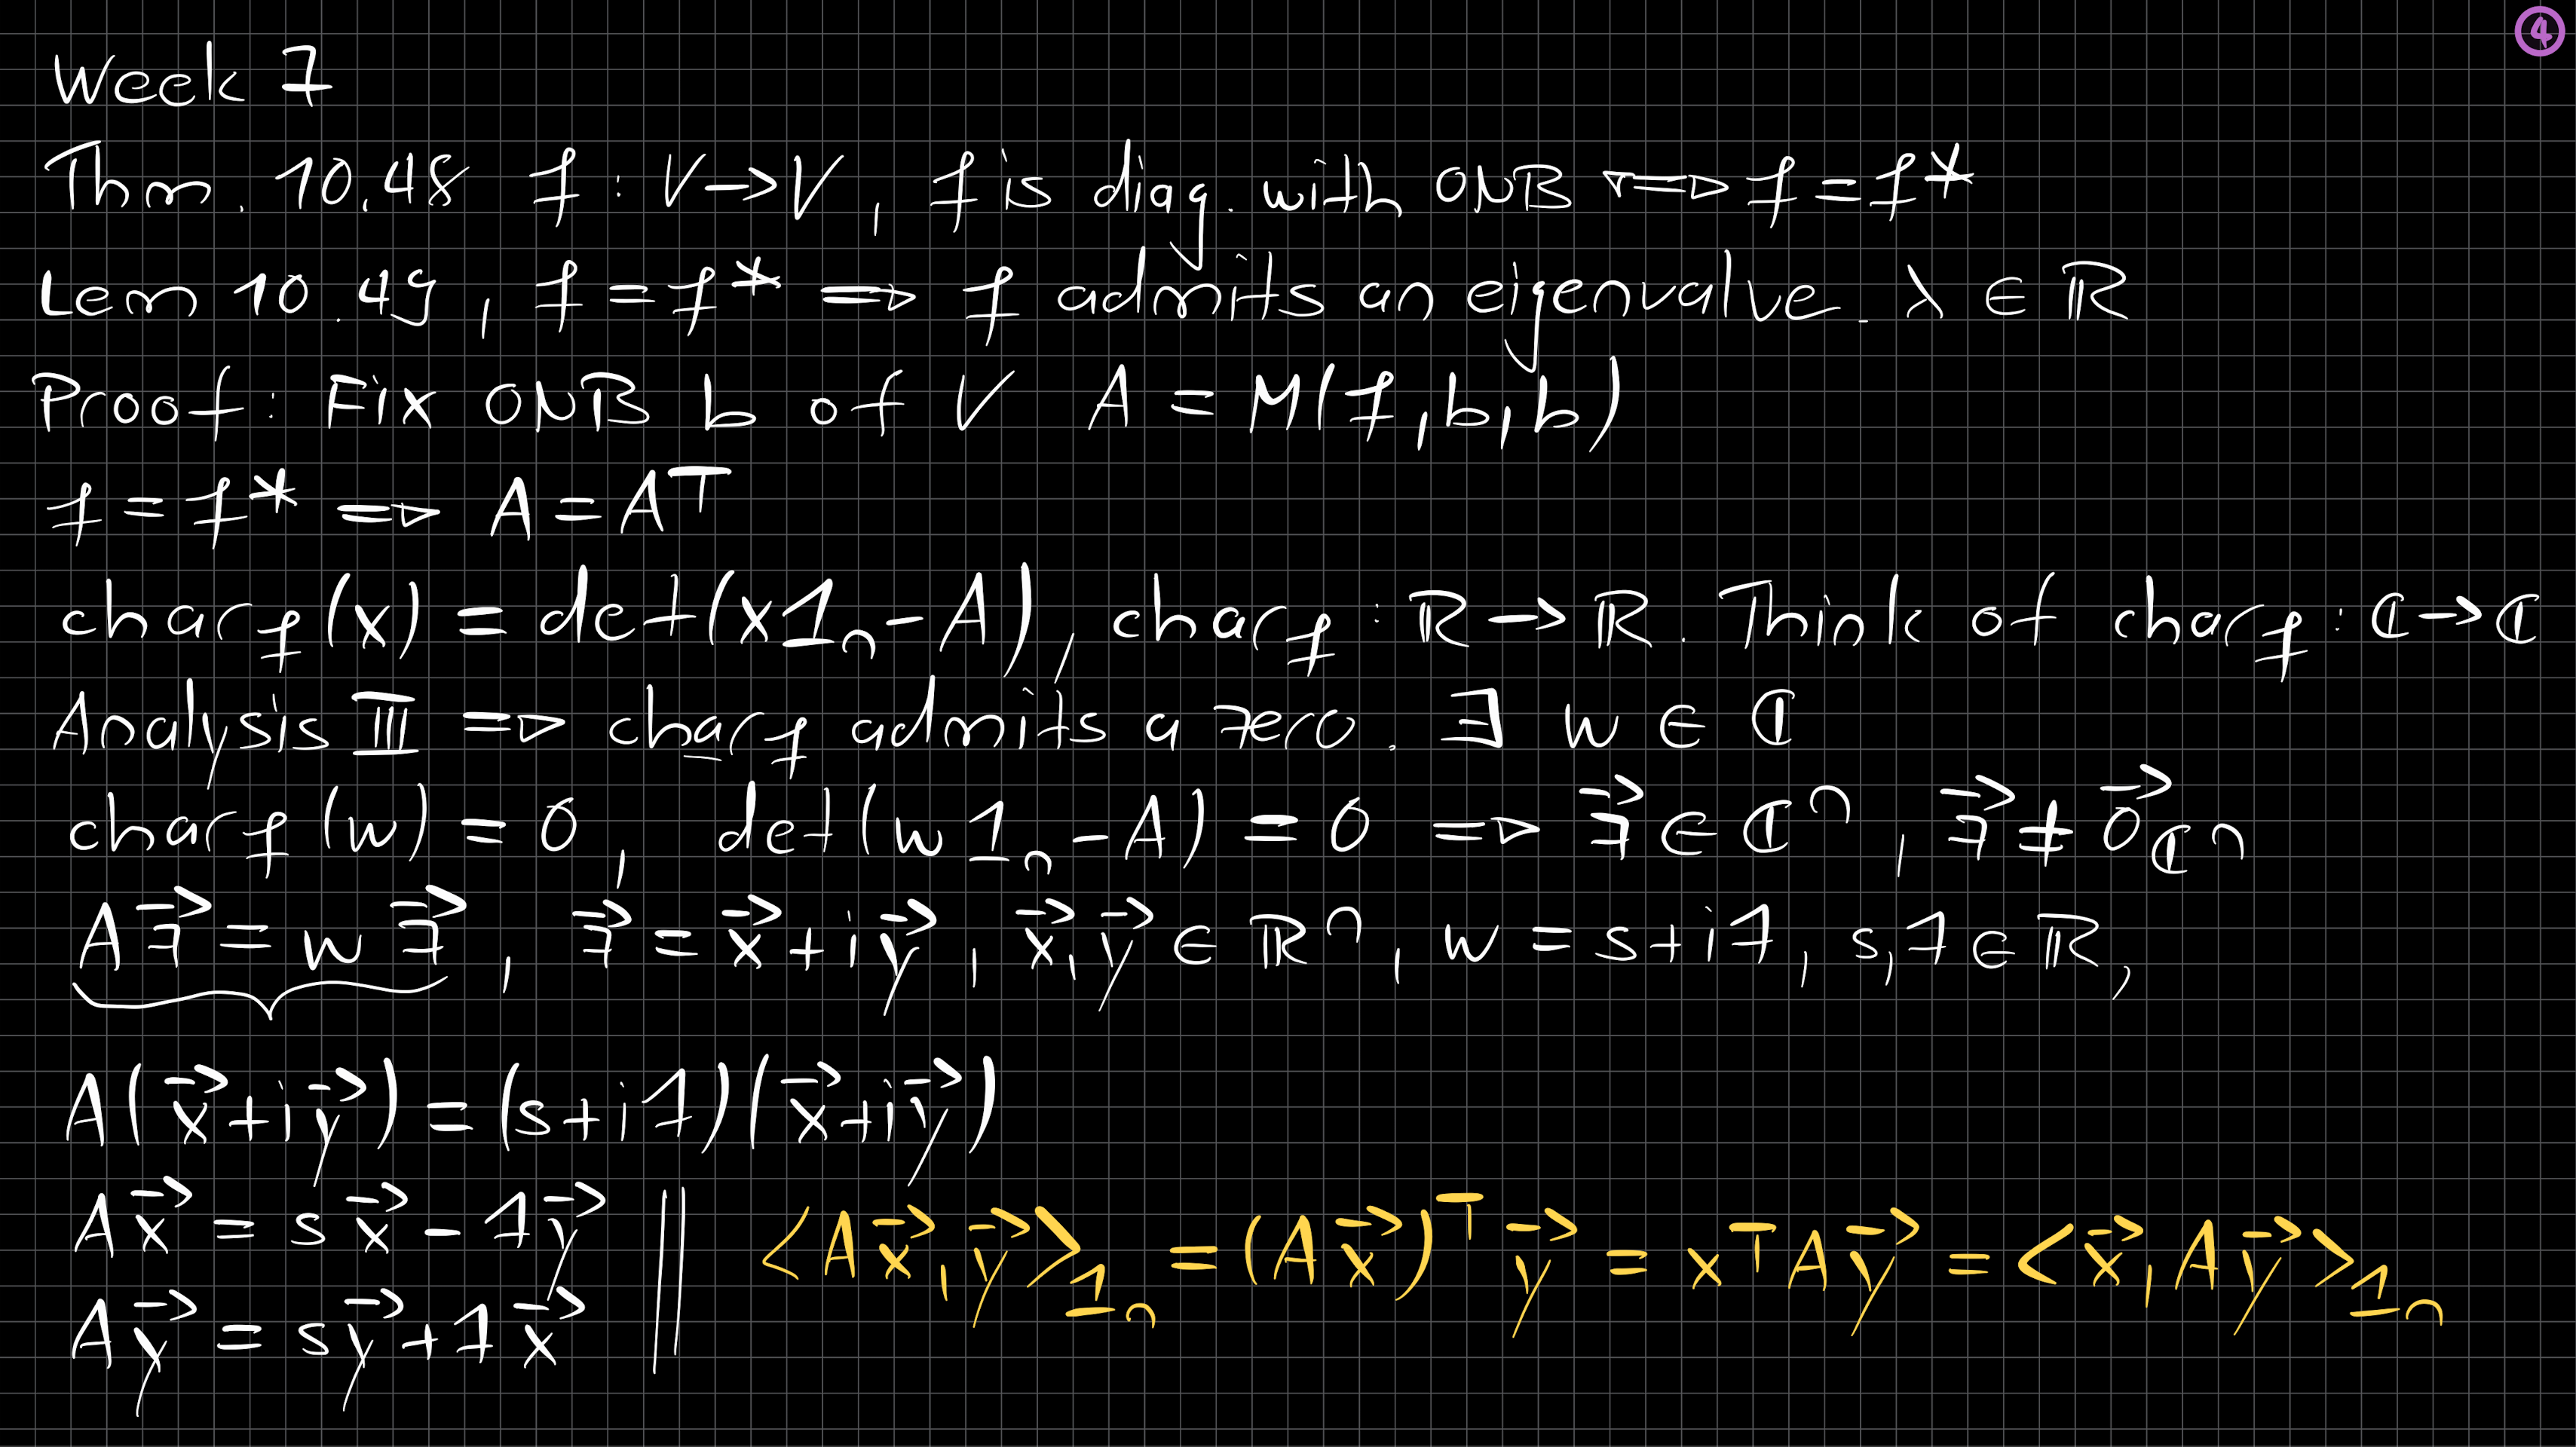 ④
Week 7
Thm. 10.48 f : V → V, f is diag. with ONB ⇔ f = f*
Lem 10.49, f = f* ⇒ f admits an eigenvalue. λ ∈ ℝ
Proof: Fix ONB b of V A = M(f,b,b)
f = f* ⇒ A = Aᵀ
char_f(x) = det(x1ₙ - A), char_f : ℝ → ℝ. Think of char_f : ℂ → ℂ
Analysis III ⇒ char_f admits a zero. ∃ w ∈ ℂ
char_f(w) = 0, det(w1ₙ - A) = 0 ⇒ z⃗ ∈ ℂⁿ, z⃗ ≠ 0⃗_ℂⁿ
Az⃗ = wz⃗, z⃗ = x⃗ + iy⃗, x⃗, y⃗ ∈ ℝⁿ, w = s + it, s, t ∈ ℝ,
A(x⃗ + iy⃗) = (s + it)(x⃗ + iy⃗)
Ax⃗ = sx⃗ - ty⃗
Ay⃗ = sy⃗ + tx⃗
<Ax⃗, y⃗>_1ₙ = (Ax⃗)ᵀ y⃗ = xᵀAy⃗ = <x⃗, Ay⃗>_1ₙ